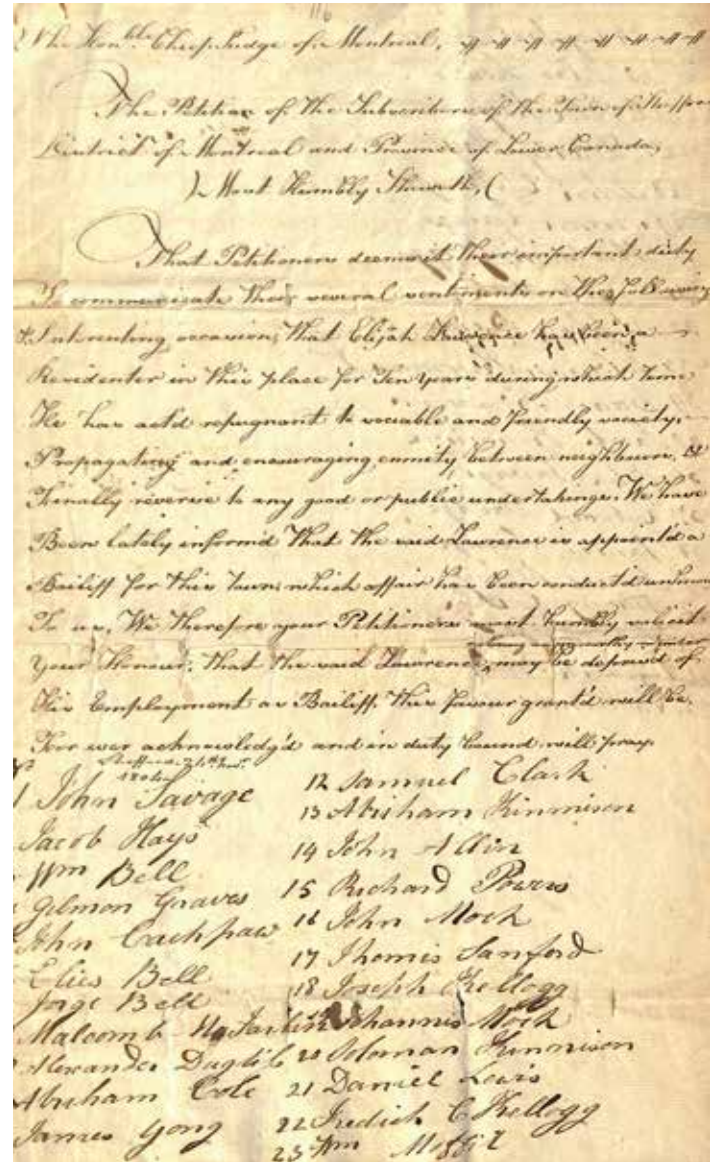 116
The Honble Cheef Judge of Montreal,
The Petition of the Subscribers of the Town of
District of Montreal and Province of Lower Canada,
Most Humbly Sheweth,
That Petitioners deems it their important duty
To communicate their several sentiments on the following
Interesting occasion, That Elijah Lawrence has been a
Residenter in this place for Ten years during which time
He has act'd repugnant to sociable and friendly society,
Propagating and encouraging enmity between neighbours, &
Finally reverse to any good or public undertakings. We have
Been lately inform'd That the said Lawrence is appoint'd a
Bailiff for this town, which affair has been conduct'd unknown
To us, We therefore your Petitioners most humbly solicit
Your Honour, that the said Lawrence, may be depriv'd of
His Employment as Bailiff, this favour grant'd will be
For ever acknowledg'd and in duty bound will pray
1804
1 John Savage
Jacob Hays
Wm Bell
Gilmon Graves
John Cuchpaw
Elies Bell
Jorge Bell
Malcomb
Alexander Duglib
Abraham Cole
James Yong
12 Samuel Clark
13 Abriham Kinnison
14 John Allin
15 Richard Powers
16 John Mock
17 Thomis Sanford
18 Joseph Kellogg
Johannis Mock
20 Soloman Kinnison
21 Daniel Lewis
22 Fredick C Kellogg
23 Wm Moffit